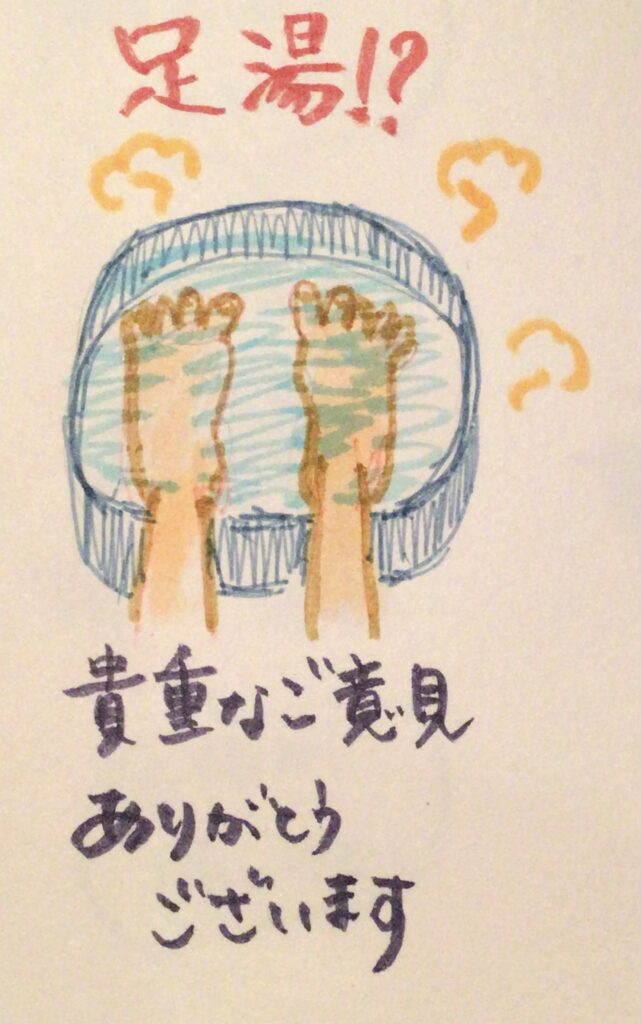 足湯!?
貴重なご意見
ありがとう
ございます